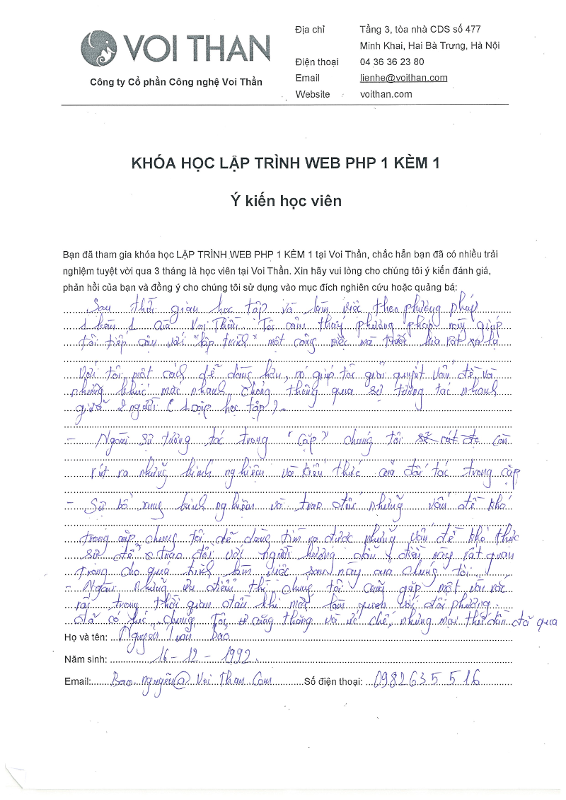 VOI THAN
Công ty Cổ phần Công nghệ Voi Thần
Địa chỉ Tầng 3, tòa nhà CDS số 477
Minh Khai, Hai Bà Trưng, Hà Nội
Điện thoại 04 36 36 23 80
Email lienhe@voithan.com
Website voithan.com
KHÓA HỌC LẬP TRÌNH WEB PHP 1 KÈM 1
Ý kiến học viên
Bạn đã tham gia khóa học LẬP TRÌNH WEB PHP 1 KÈM 1 tại Voi Thần, chắc hẳn bạn đã có nhiều trải
nghiệm tuyệt vời qua 3 tháng là học viên tại Voi Thần. Xin hãy vui lòng cho chúng tôi ý kiến đánh giá,
phản hồi của bạn và đồng ý cho chúng tôi sử dụng vào mục đích nghiên cứu hoặc quảng bá:
Sau thời gian học tập và làm việc theo phương pháp
1 kèm 1 của Voi Thần. Tôi cảm thấy phương pháp này giúp
tôi tiếp cận với "lập trình" một công việc mà trước kia rất xa lạ
Với tôi một cách dễ dàng hơn, nó giúp tôi giải quyết vấn đề và
những khúc mắc nhanh chóng thông qua sự tương tác nhanh
giữa 2 người (1 cặp học tập).
- Ngoài sự tương tác trong "cặp" chúng tôi còn
rút ra những kinh nghiệm và kiến thức của đối tác trong cặp
- Sự bổ xung kinh nghiệm và trao đổi những vấn đề khó
trong cặp, chúng tôi dễ dàng tìm ra được những vấn đề khó thực
sự để trao đổi với người hướng dẫn, điều này rất quan
trọng cho quá trình làm việc sau này của chúng tôi!
- Ngoài những ưu điểm thì chúng tôi cũng gặp một vài vấn
rối trong thời gian đầu khi mới làm quen với đối phương
đã có lúc chúng Tôi căng thẳng và ức chế, nhưng mọi thứ dần đã qua
Họ và tên: Nguyen Tuấn Bảo
Năm sinh: 16 - 12 - 1992
Email: Bao nguyen@ Voi Than Com Số điện thoại: 0982635516